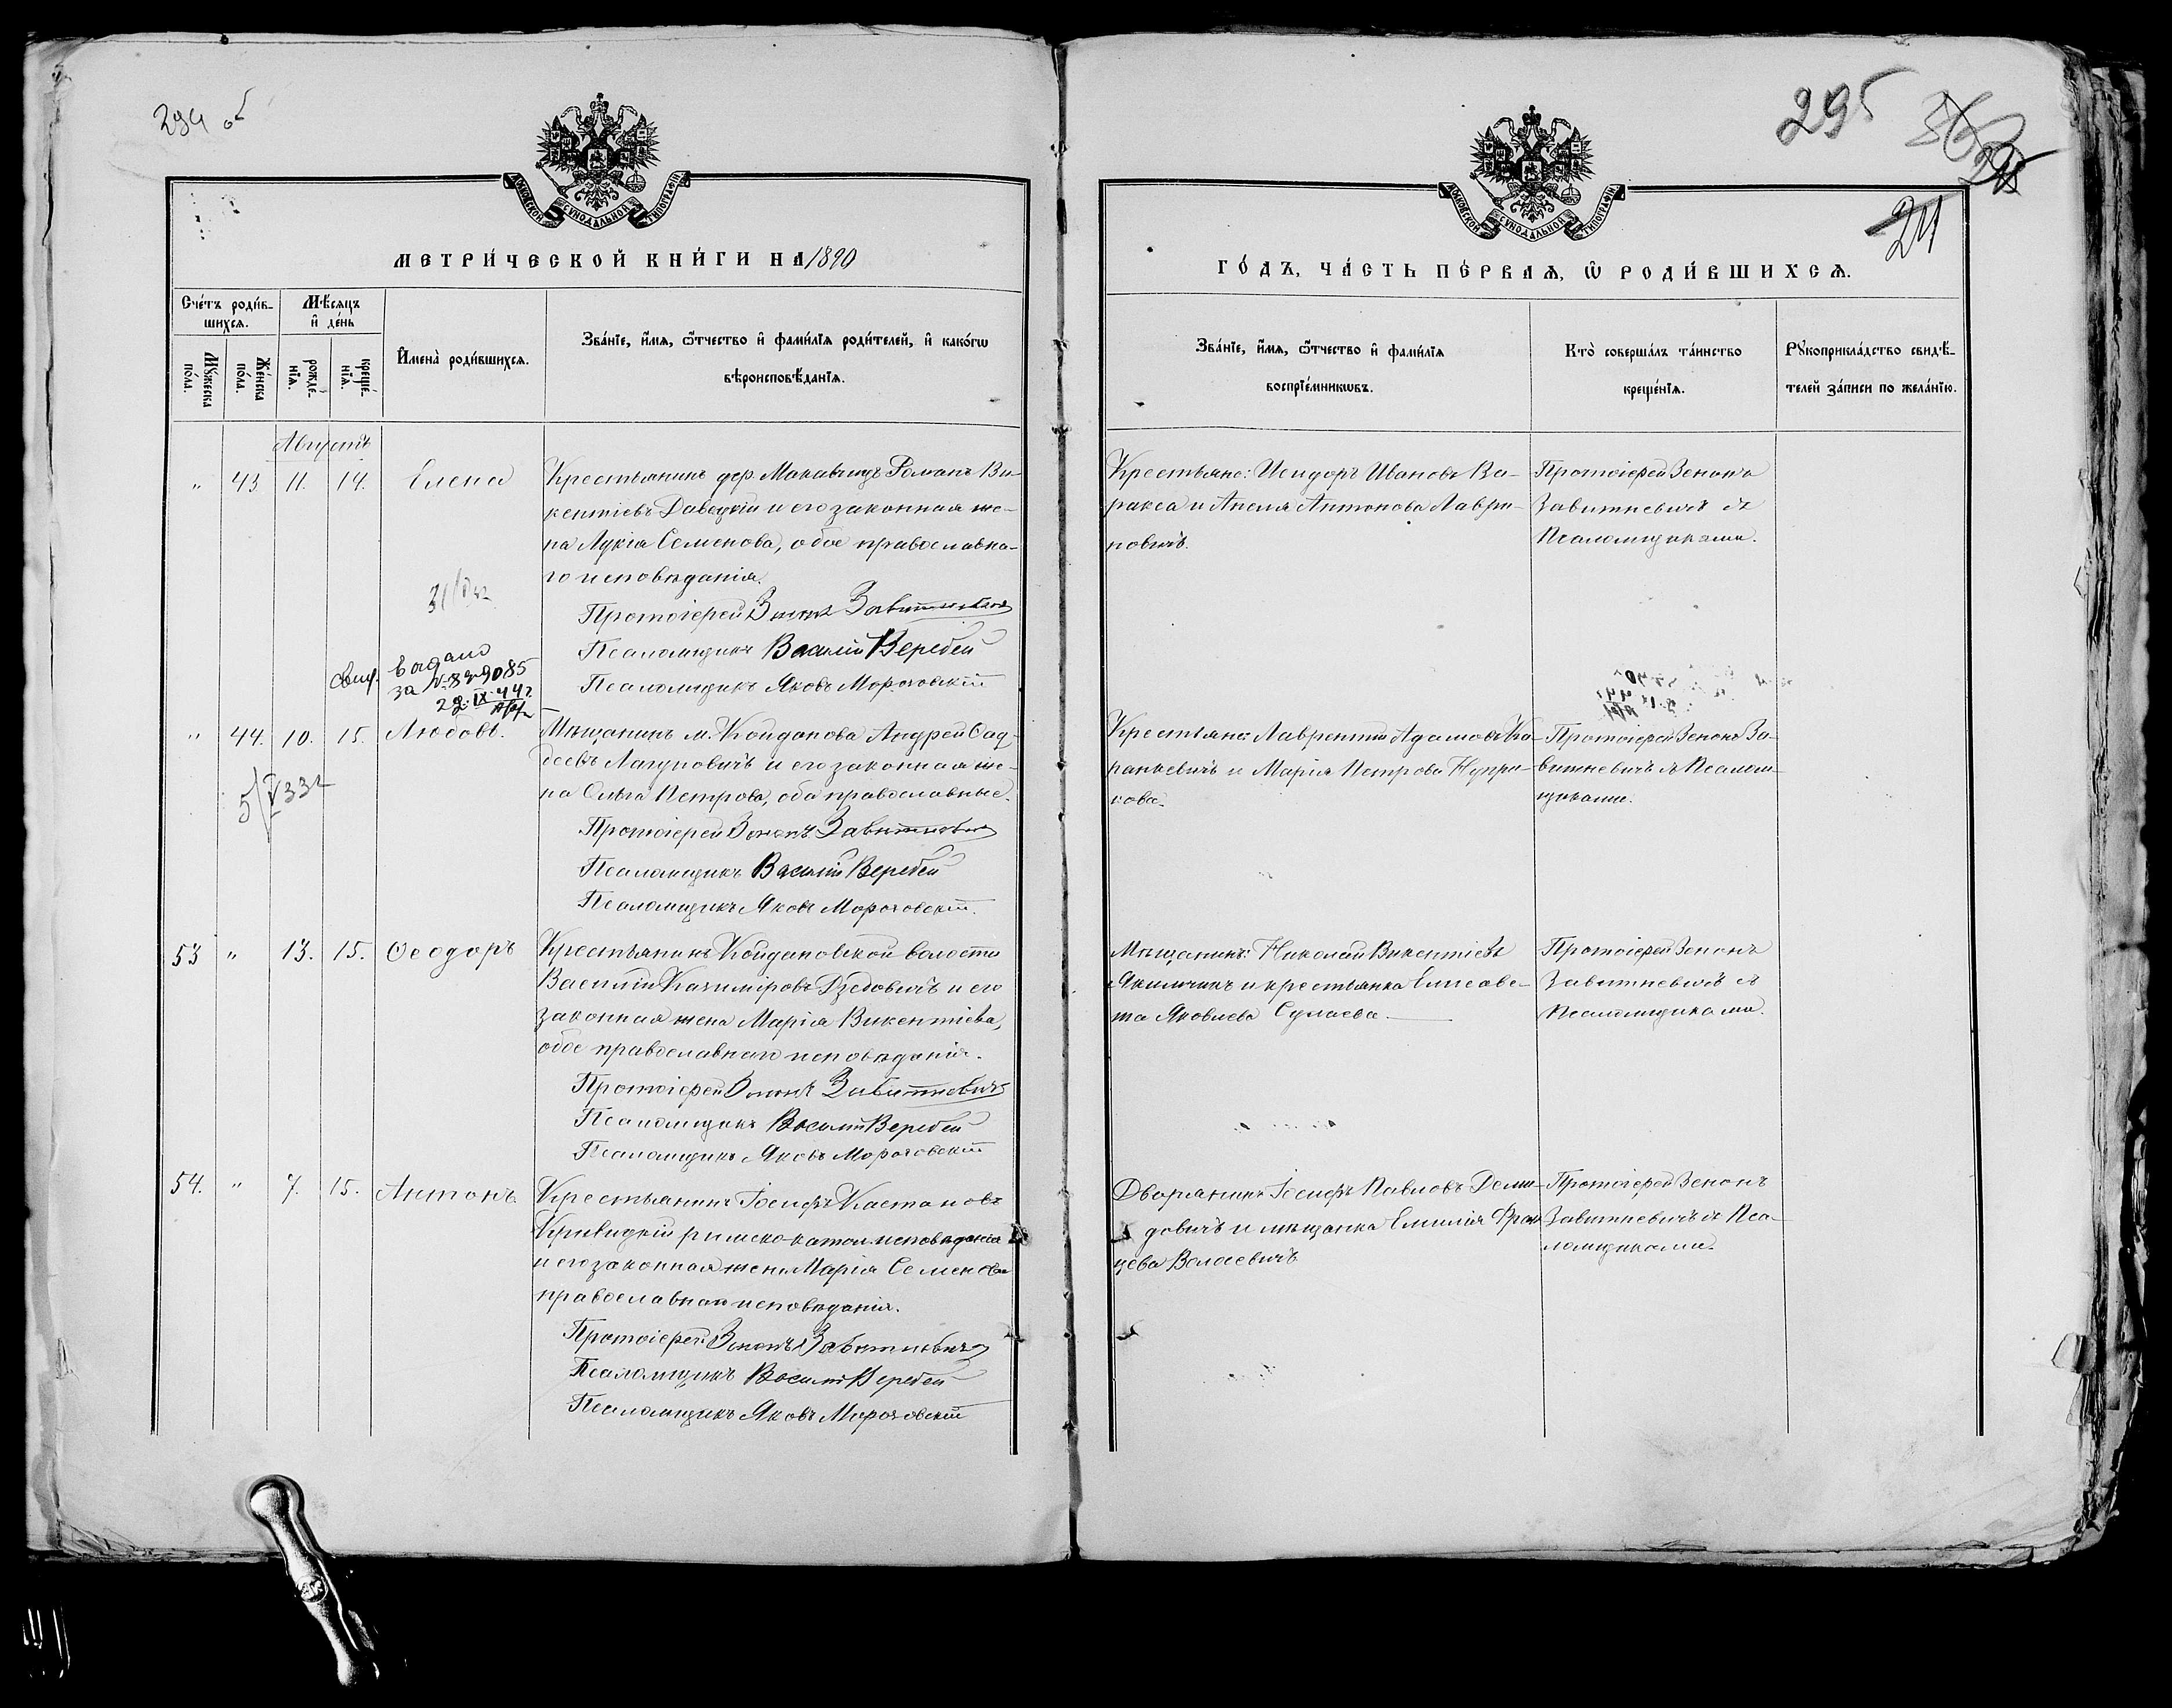 294 об
МОСКОВСКОЙ СУНОДАЛЬНОЙ ТИПОГРАФІИ
МЕТРИ́ЧЕСКОЙ КНИ́ГИ НА 1890
Сче́тъ роди́в-
шихсѧ.
Мѣ́сѧцъ
и҆ де́нь
И҆мена̀ роди́вшихсѧ.
Зва́нїе, и҆́мѧ, ѻ҆́тчество и҆ фамі́лїѧ роди́телей, и҆ како́гѡ
вѣроисповѣ́данїѧ.
Мꙋ́жеска
по́ла.
Же́нска
по́ла.
рожде́-
нїѧ.
креще́-
нїѧ.
Августъ
" 43 11. 14. Елена
Крестьянинъ дер. Макавчицъ Романъ Ви-
кентіевъ и его законная же-
на Лукія Семенова, обое православна-
го исповѣданія.
Протоіерей Зенонъ Завитневичъ
Псаломщикъ Василій Веребей
Псаломщикъ Яковъ Морозовскій
свид. выдано
за №
29 IX 44 г.
" 44. 10. 15. Любовь.
Мѣщанинъ м. Койданова Андрей Фад-
деевъ Лагуновичъ и его законная же-
на Ольга Петрова, оба православные.
5/V 33 г
Протоіерей Зенонъ Завитневичъ
Псаломщикъ Василій Веребей
Псаломщикъ Яковъ Морозовскій.
53 " 13. 15. Ѳеодоръ
Крестьянинъ Койдановской волости
Василій Казиміровъ и его
законная жена Марія Викентіева,
обое православнаго исповѣданія.
Протоіерей Зенонъ Завитневичъ
Псаломщикъ Василій Веребей
Псаломщикъ Яковъ Морозовскій
54. " 7. 15. Антонъ.
Крестьянинъ Іосифъ Каетановъ
Кривицкій римско-катол. исповѣданія
и его законная жена Марія Семенова
православнаго исповѣданія.
Протоіерей Зенонъ Завитневичъ
Псаломщикъ Василій Веребей
Псаломщикъ Яковъ Морозовскій
295
24
МОСКОВСКОЙ СУНОДАЛЬНОЙ ТИПОГРАФІИ
ГО́ДЪ, ЧА́СТЬ ПЕ́РВАѦ, Ѽ РОДИ́ВШИХСѦ.
Зва́нїе, и҆́мѧ, ѻ҆́тчество и҆ фамі́лїѧ
воспрїе́мникѡвъ.
Кто̀ соверша́лъ та́инство
креще́нїѧ.
Рꙋкоприкла́дство свидѣ́-
телей за́писи по жела́нїю.
Крестьяне: Исидоръ Ивановъ Ва-
ракса и Анеля Антонова Лаври-
новичъ.
Протоіерей Зенонъ
Завитневичъ съ
Псаломщиками.
Крестьяне: Лаврентій Адамовъ Ка-
ранкевичъ и Марія Петрова Купри-
кова.
Протоіерей Зенонъ За-
витневичъ съ Псалом-
щиками.
Мѣщанинъ Николай Викентіевъ
и крестьянка Елисаве-
та Яковлева Сулаева.
Протоіерей Зенонъ
Завитневичъ съ
Псаломщиками.
Дворянинъ Іосифъ Павловъ Деми-
довичъ и мѣщанка Емилія Фран-
цева Волосевичъ
Протоіерей Зенонъ
Завитневичъ съ Пса-
ломщиками.